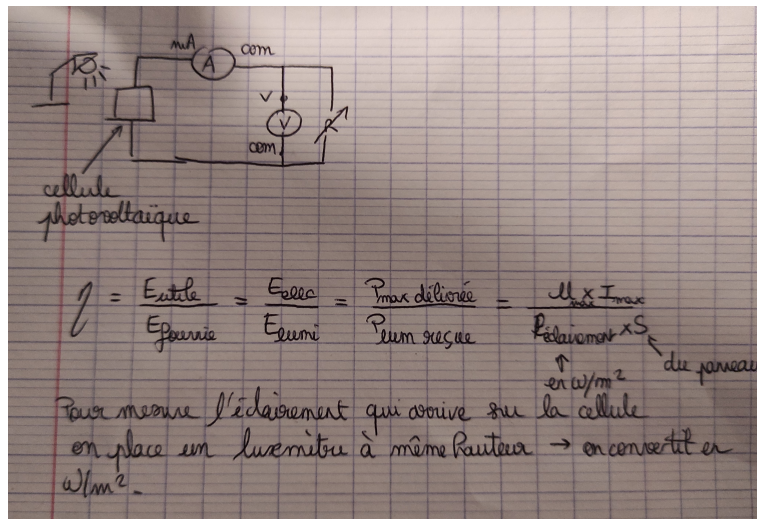 mA A com
V
V
R
com
cellule
photovoltaïque
η = Eutile / Efournie = Eelec / Elumi = Pmax délivrée / Plum reçue = Umax x Imax / Péclairement x S
du panneau
en W/m²
Pour mesure l'éclairement qui arrive sur la cellule
on place un luxmètre à même hauteur → on convertit en
W/m².